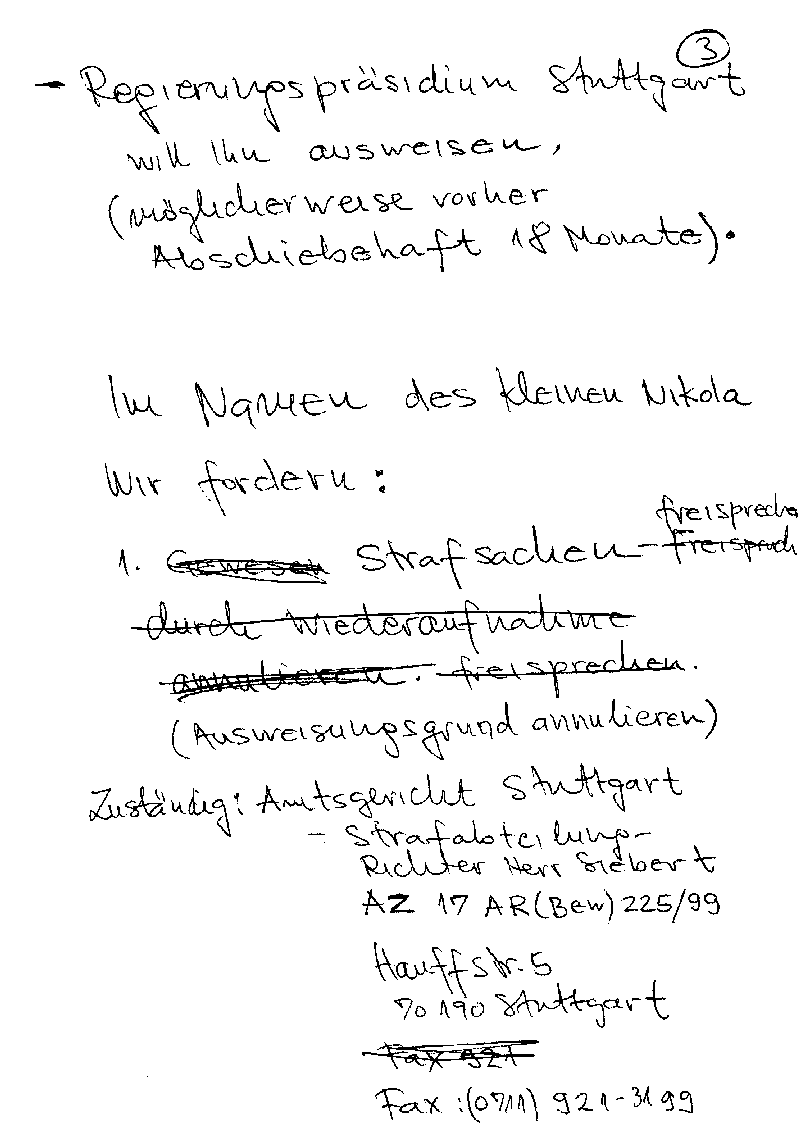 3
- Regierungspräsidium Stuttgart
will ihn ausweisen,
(möglicherweise vorher
Abschiebehaft 18 Monate).
Im Namen des kleinen Nikola
Wir fordern:
freispreche
1. Gewesen Strafsachen - Freispruch
durch Wiederaufnahme
annulieren. freisprechen.
(Ausweisungsgrund annulieren)
Zuständig: Amtsgericht Stuttgart
- Strafabteilung-
Richter Herr Siebert
AZ 17 AR(Bew) 225/99
Hauffstr. 5
70190 Stuttgart
Fax 921
Fax: (0711) 921-3199